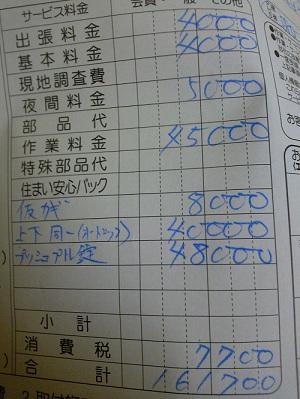 サービス料金
出張料金 4000
基本料金 4000
現地調査費
夜間料金 5000
部品代
作業料金 45000
特殊部品代
住まい安心パック
8000
上下同一(オートロック) 40000
プッシュプル錠 48000
小計
消費税 7700
合計 161700